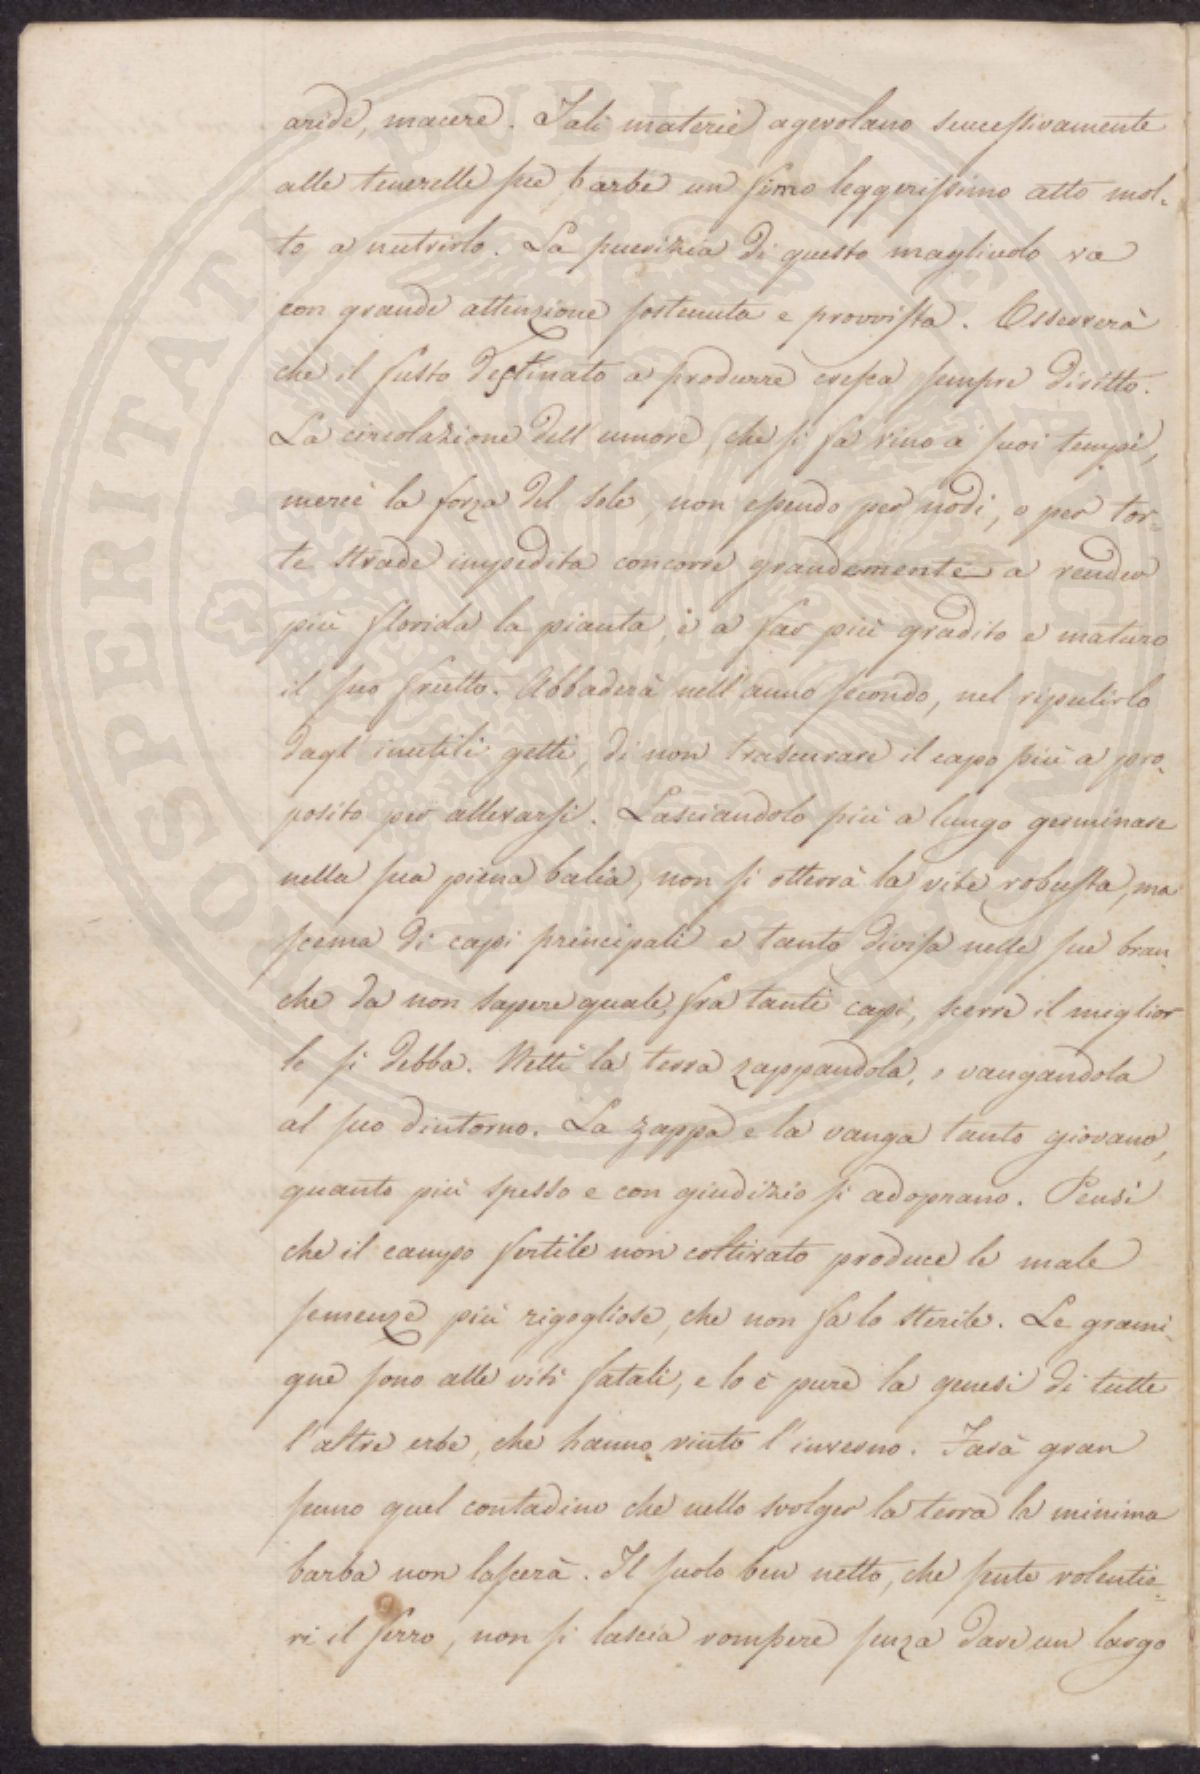 aride, macere. Tali materie agevolano successivamente
alle tenerelle sue barbe un fimo leggerissimo atto mol-
to a nutrirlo. La puerizia di questo magliuolo va
con grande attenzione sostenuta e provvista. Osserverà
che il fusto destinato a produrre cresca sempre diritto.
La circolazione dell'umore, che si fa vino a' suoi tempi,
mercè la forza del sole, non essendo per nodi, o per tor-
te strade impedita concorre grandemente a render
più florida la pianta, e a far più gradito e maturo
il suo frutto. Abbaderà nell'anno secondo, nel ripulirlo
dagl'inutili getti, di non trascurare il capo più a pro-
posito per allevarsi. Lasciandolo più a lungo germinare
nella sua piena balìa, non si otterrà la vite robusta, ma
scema di capi principali e tanto divisa nelle sue bran-
che da non sapere quale, fra tanti capi, scerre il miglior
lo si debba. Netti la terra zappandola, o vangandola
al suo dintorno. La zappa e la vanga tanto giovano,
quanto più spesso e con giudizio si adoprano. Pensi
che il campo fertile non coltivato produce le male
semenze più rigogliose, che non fa lo sterile. Le grami-
gne sono alle viti fatali, e lo è pure la genesi di tutte
l'altre erbe, che hanno vinto l'inverno. Farà gran
senno quel contadino che nello svolger la terra la minima
barba non lascerà. Il suolo ben netto, che sente volentie-
ri il ferro, non si lascia rompere senza dare un largo
PROSPERITATI PUBLICAE AUGENDAE